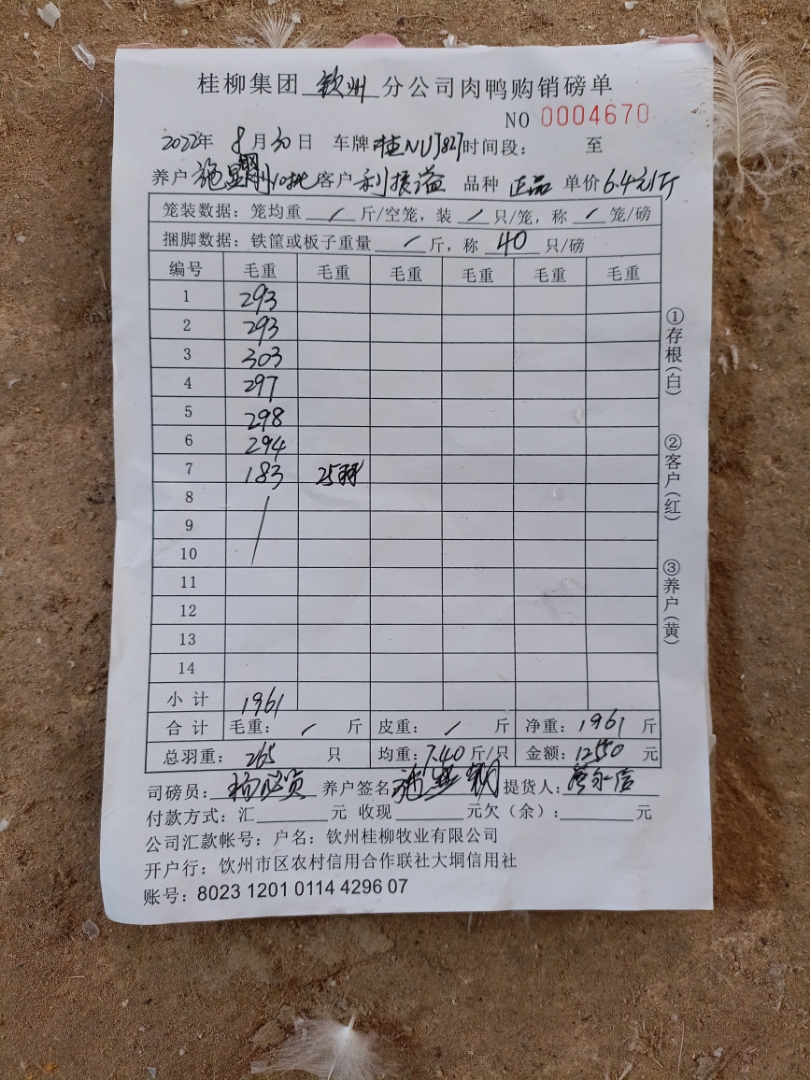 桂柳集团 钦州 分公司肉鸭购销磅单
NO 0004670
2022年 8月30日 车牌 桂NU 时间段： 至
养户 施显 10批 客户 利振溢 品种 正品 单价 6.4元/斤
笼装数据：笼均重 / 斤/空笼，装 / 只/笼，称 / 笼/磅
捆脚数据：铁筐或板子重量 / 斤，称 40 只/磅
编号 毛重 毛重 毛重 毛重 毛重 毛重
1 293
2 293
3 303
4 297
5 298
6 294
7 183 25羽
8
9
10
11
12
13
14
小计 1961
合计 毛重： / 斤 皮重： / 斤 净重：1961 斤
总羽重： 265 只 均重：7.40 斤/只 金额：12550 元
司磅员： 养户签名 施显 提货人：
付款方式：汇 元 收现 元欠（余）： 元
公司汇款帐号：户名：钦州桂柳牧业有限公司
开户行：钦州市区农村信用合作联社大垌信用社
账号：8023 1201 0114 4296 07
①存根（白）
②客户（红）
③养户（黄）